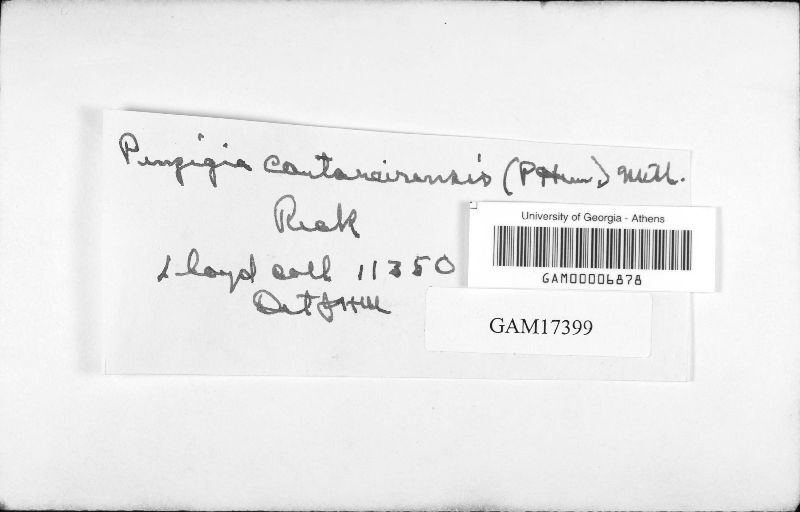 Penzigia cantareirensis (P. Henn.) Mill.
Rick
Lloyd coll 11350
Det JHM
University of Georgia - Athens
GAM00006878
GAM17399